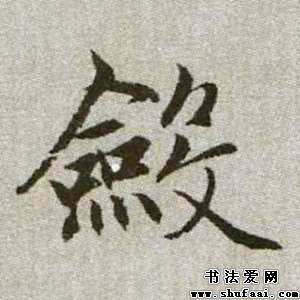 斂
书法爱网
www.shufaai.com